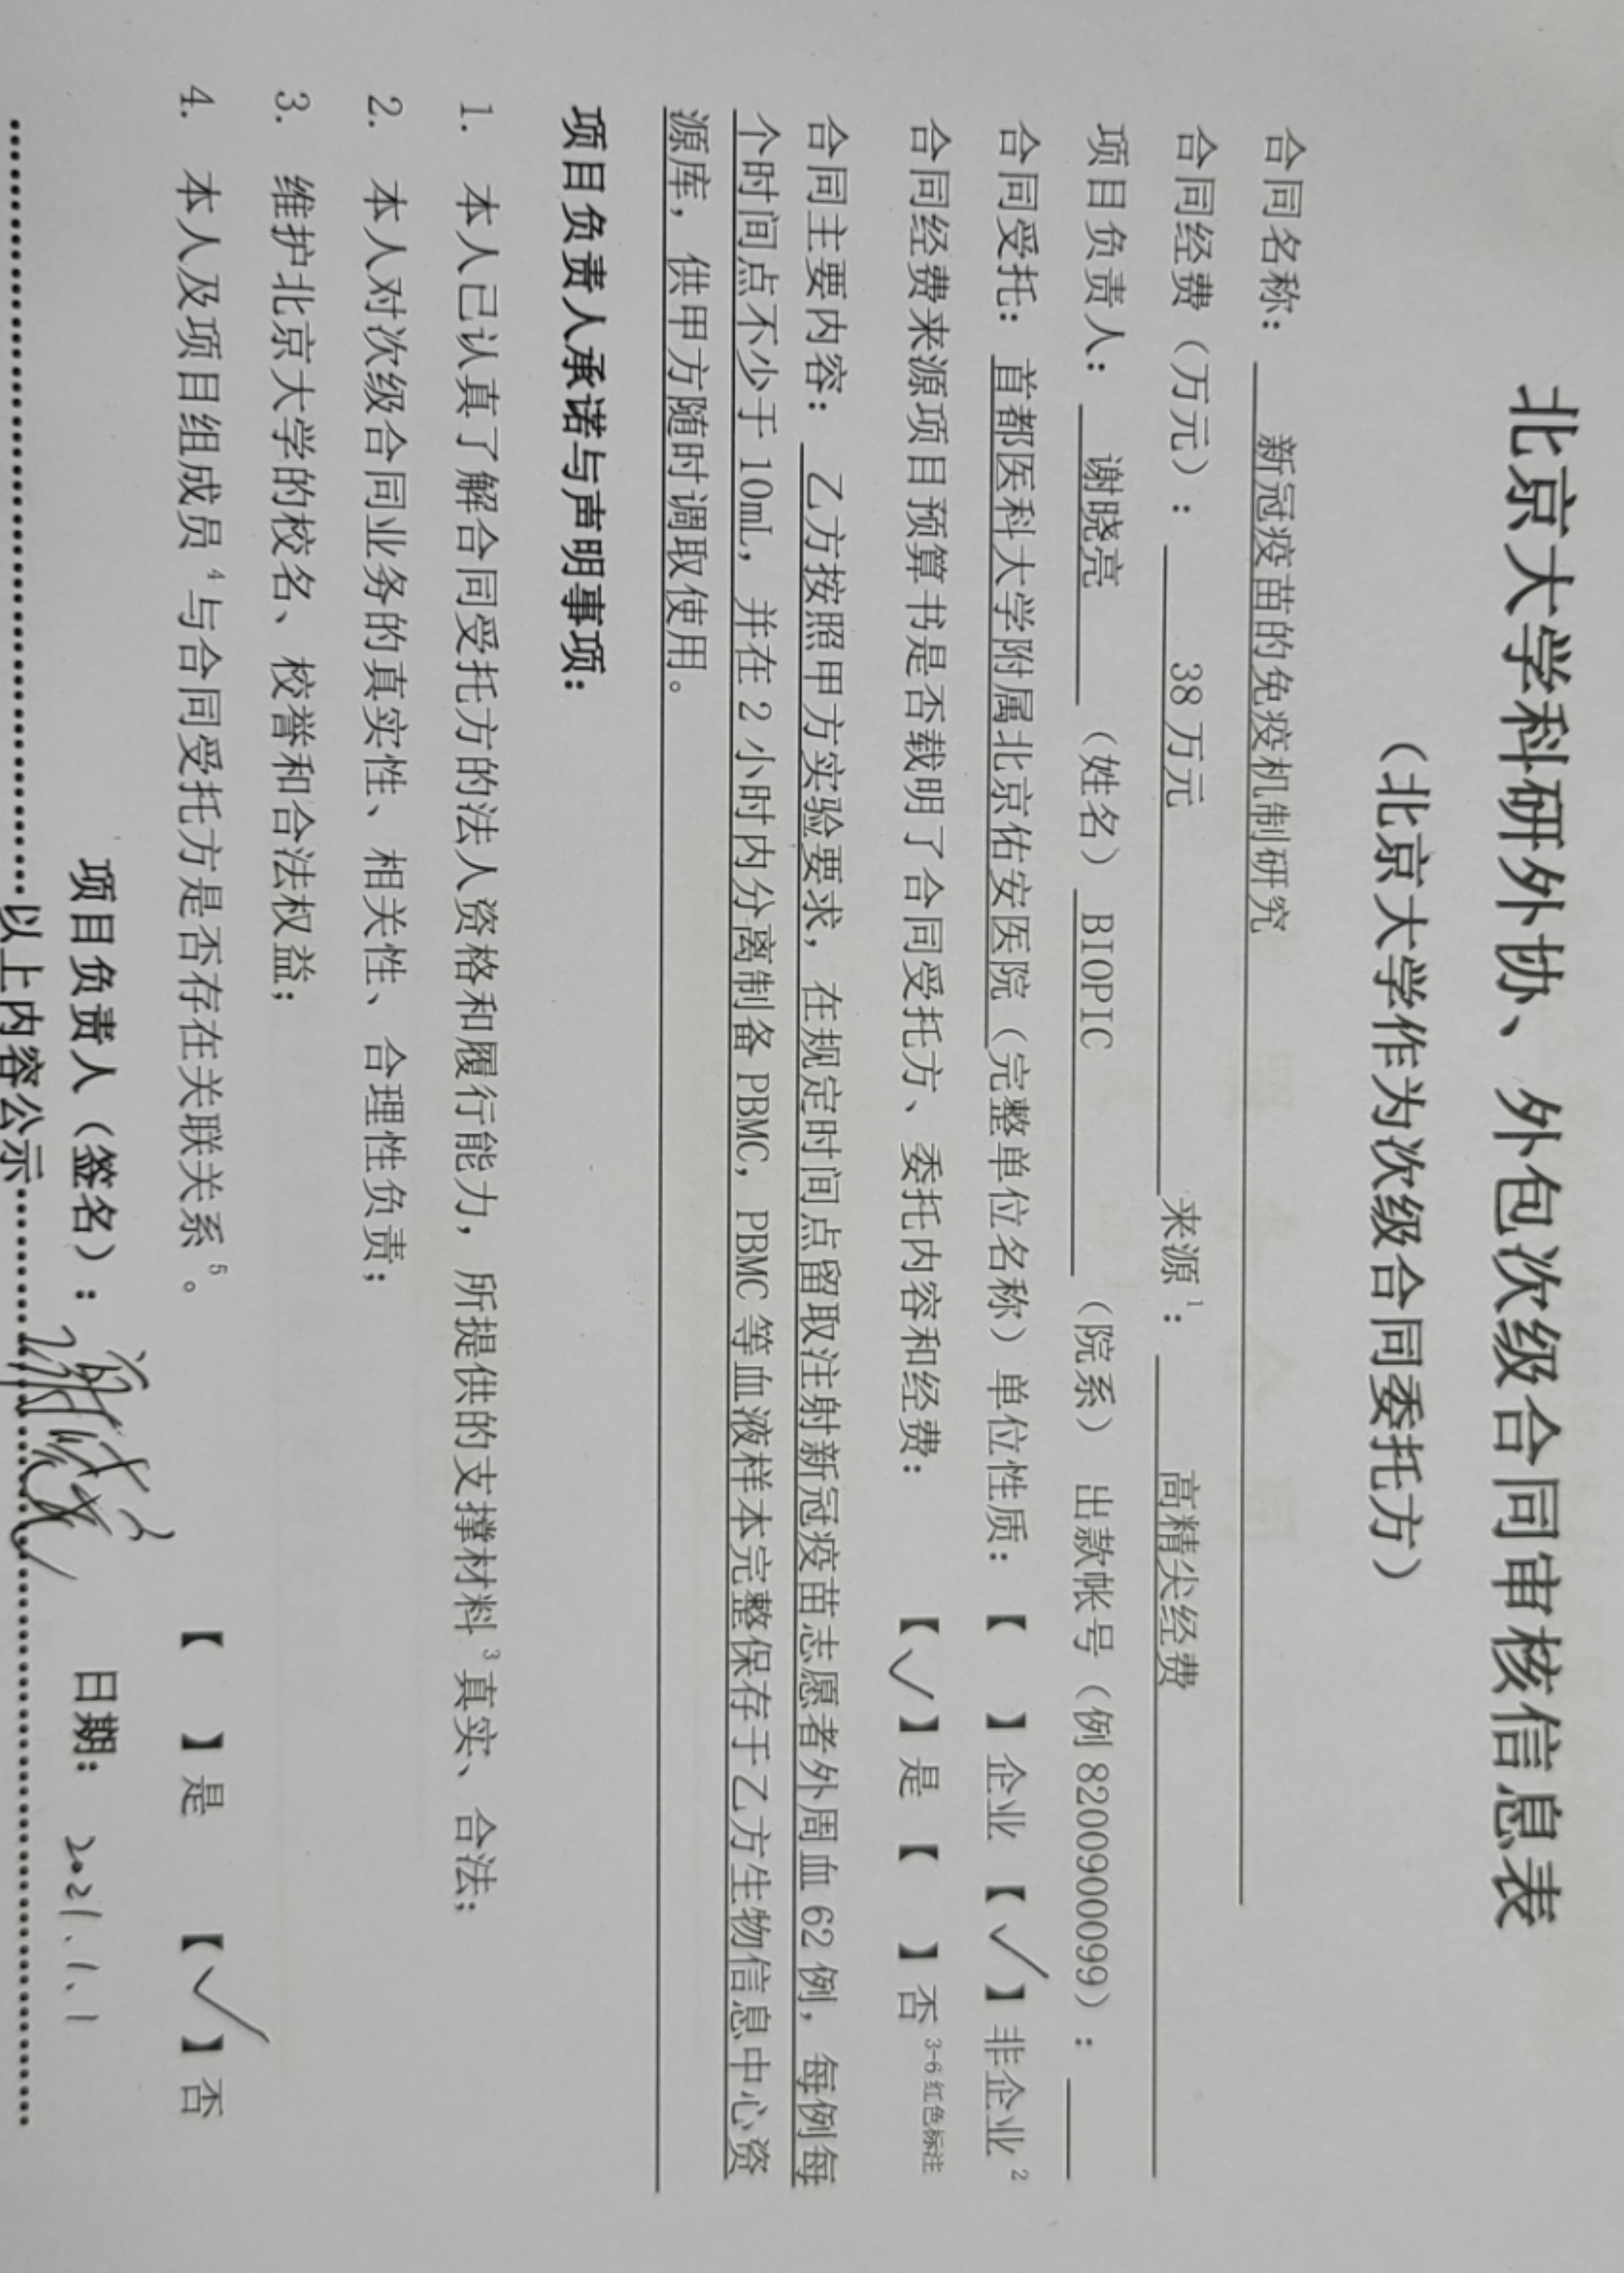 北京大学科研外协、外包次级合同审核信息表
（北京大学作为次级合同委托方）
合同名称： 新冠疫苗的免疫机制研究
合同经费（万元）： 38万元 来源1： 高精尖经费
项目负责人： 谢晓亮 （姓名） BIOPIC （院系） 出款帐号（例8200900099）：
合同受托：首都医科大学附属北京佑安医院（完整单位名称）单位性质：【 】企业【√】非企业2
合同经费来源项目预算书是否载明了合同受托方、委托内容和经费： 【√】是【 】否3-6红色标注
合同主要内容： 乙方按照甲方实验要求，在规定时间点留取注射新冠疫苗志愿者外周血62例，每例每
个时间点不少于10mL，并在2小时内分离制备PBMC，PBMC等血液样本完整保存于乙方生物信息中心资
源库，供甲方随时调取使用。
项目负责人承诺与声明事项：
1. 本人已认真了解合同受托方的法人资格和履行能力，所提供的支撑材料3真实、合法；
2. 本人对次级合同业务的真实性、相关性、合理性负责；
3. 维护北京大学的校名、校誉和合法权益；
4. 本人及项目组成员4与合同受托方是否存在关联关系5。 【 】是 【√】否
项目负责人（签名）： 日期： 2021.1.1
以上内容公示